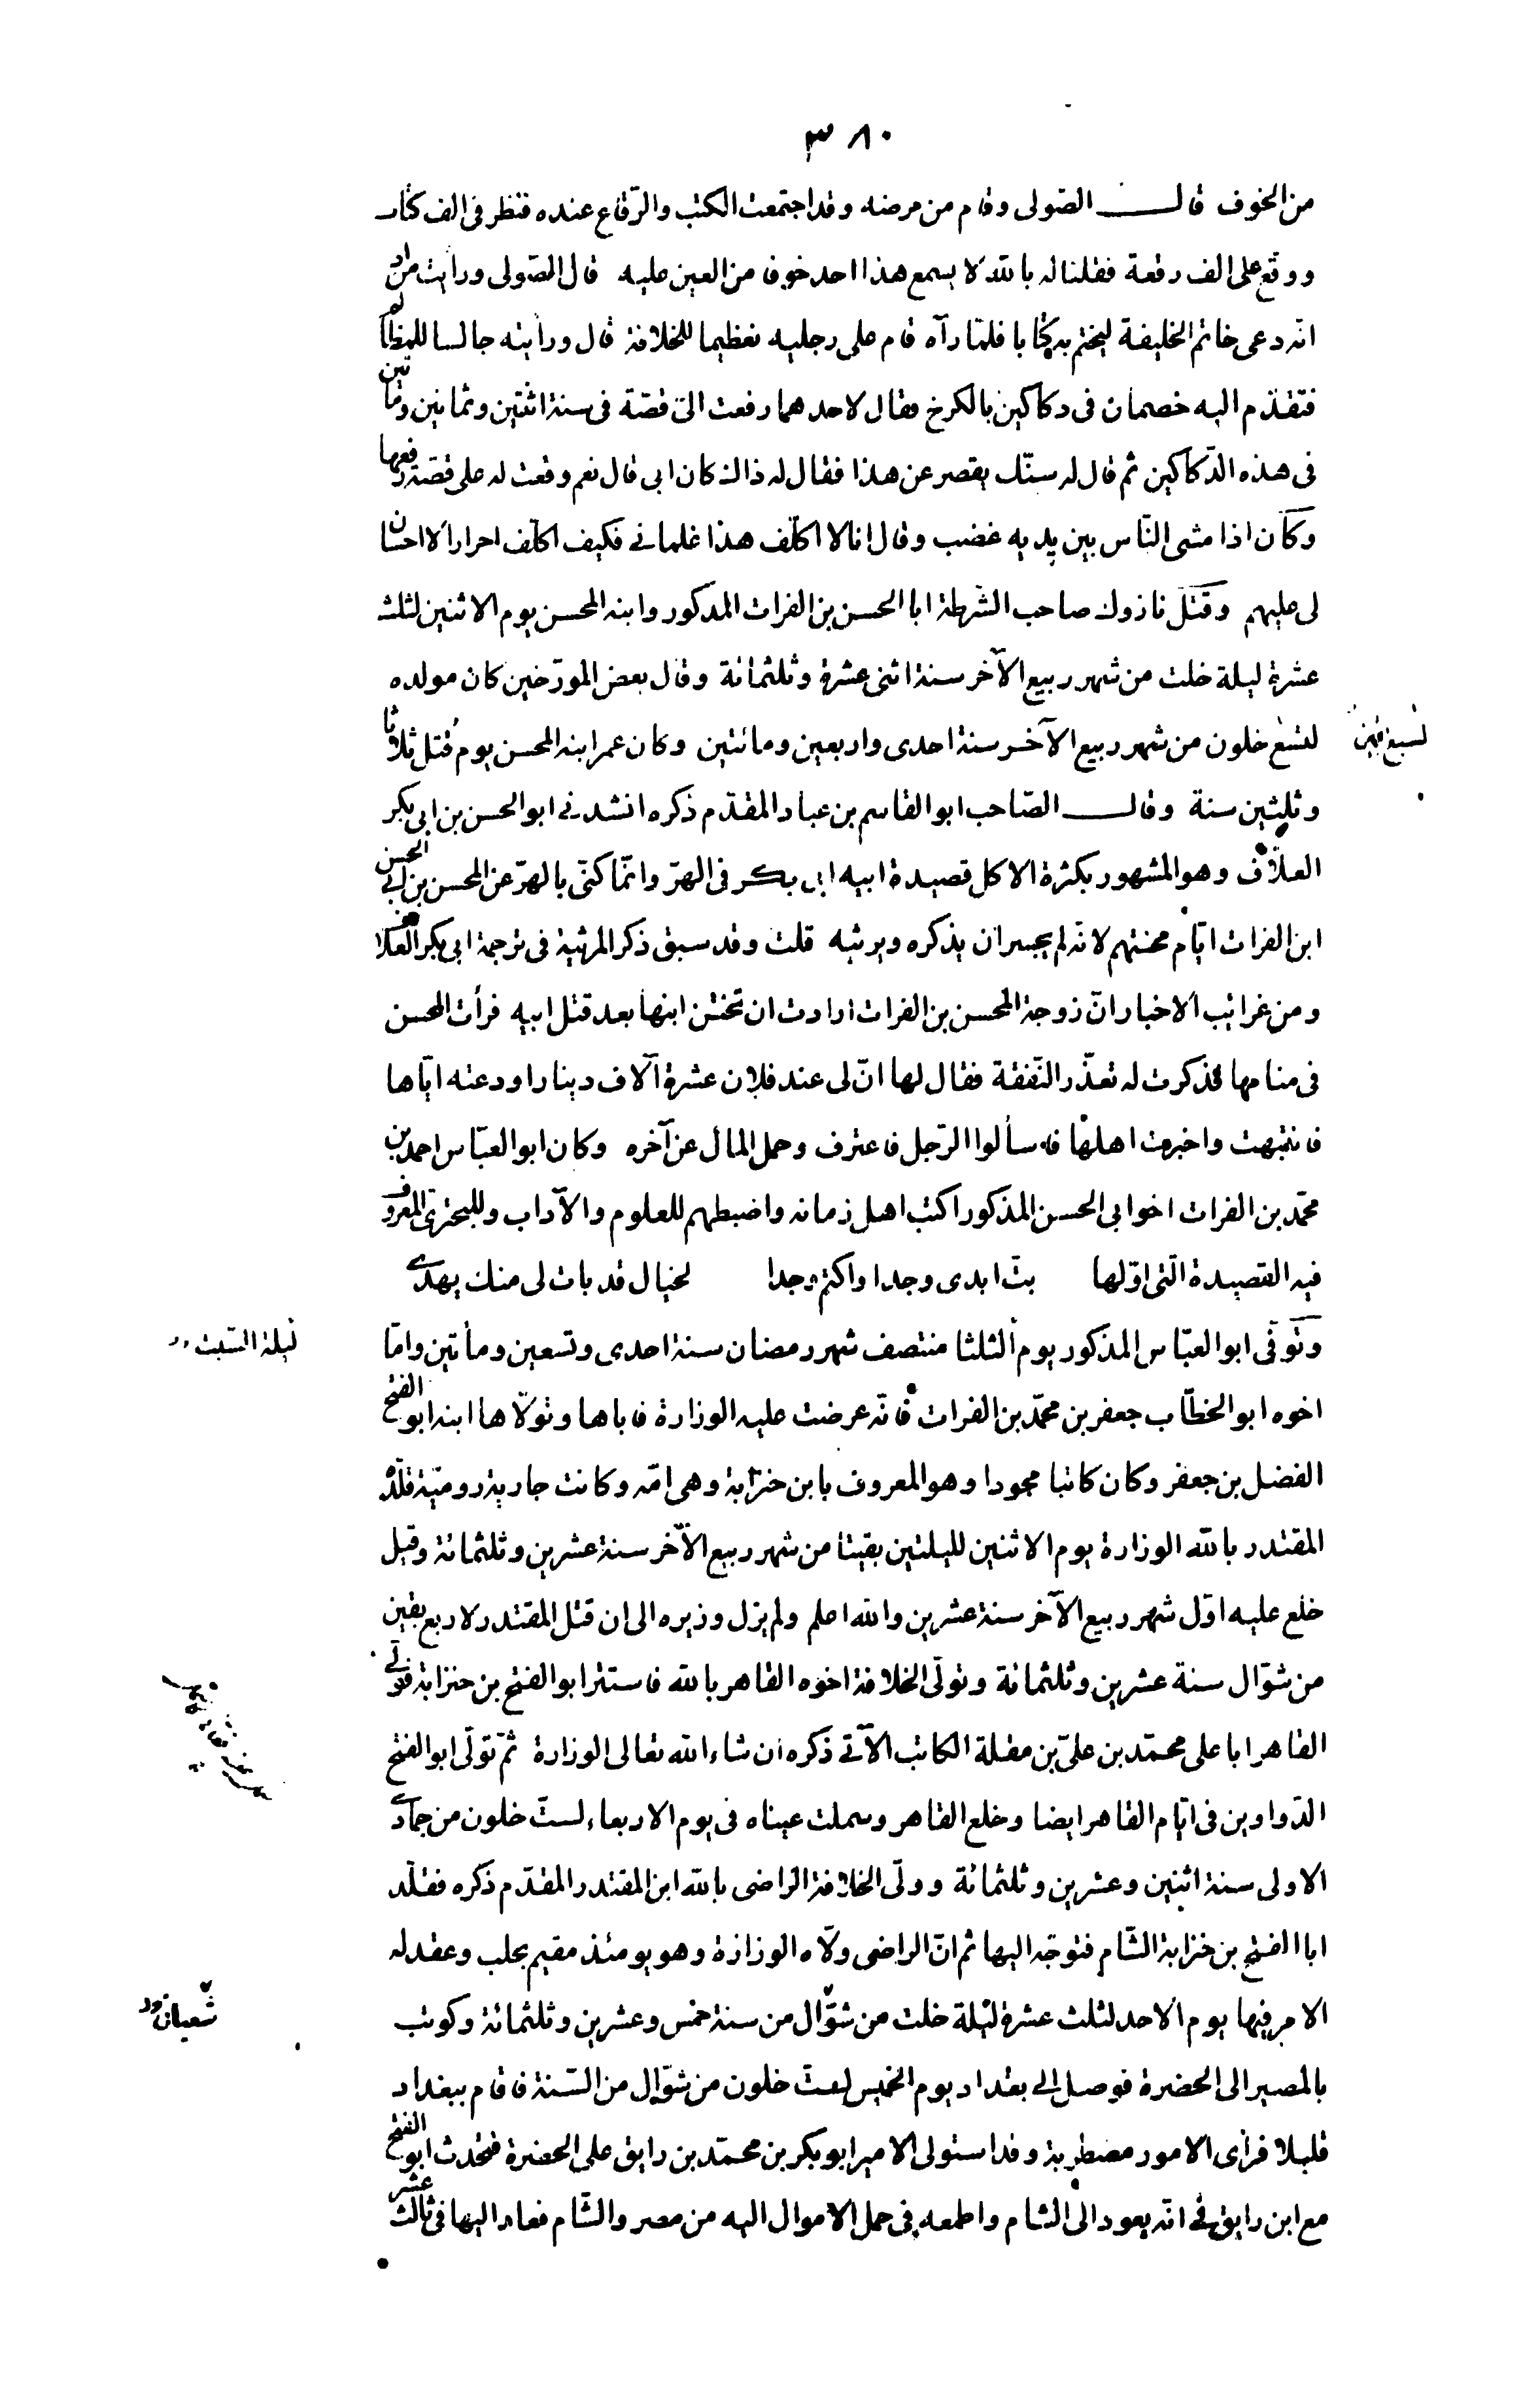 ٣٨٠
من الخوف قالـــ الصّولى وقام من مرضه وقد اجتمعت الكتب والرّقاع عنده فنظر فى الف كتاب
ووقّع على الف رقعة فقلنا له بالله لا يسمع هذا احد خوفا من العين عليه قال الصّولى ورأيت من ادبه
انّه دعى خاتم الخليفة ليختم به كتابا فلمّا رآه قام على رجليه تعظيما للخلافة قال ورأيته جالسا للمظالم
فتقدّم اليه خصمان فى دكاكين بالكرخ فقال لاحدهما رفعت الىّ قصّة فى سنة اثنتين وثمانين ومأتين
فى هذه الدّكاكين ثم قال له سنّك يقصر عن هذا فقال له ذاك كان ابى قال نعم وقعت له على قصّة رفعها
وكان اذا مشى النّاس بين يديه غضب وقال انا لا اكلّف هذا غلمانى فكيف اكلّف احرارا لا احسان
لى عليهم وقتل نازوك صاحب الشّرطة ابا الحسن بن الفرات المذكور وابنه المحسن يوم الاثنين لثلث
عشرة ليلة خلت من شهر ربيع الآخر سنة اثنى عشرة وثلثمائة وقال بعض المورّخين كان مولده
لتسع خلون من شهر ربيع الآخر سنة احدى واربعين ومائتين وكان عمر ابنه المحسن يوم قُتل ثلاثا
وثلثين سنة وقالـــ الصّاحب ابو القاسم بن عباد المقدّم ذكره انشدنى ابو الحسن بن ابى بكر
العلاّف وهو المشهور بكثرة الاكل قصيدة ابيه ابى بكر فى الهرّ وانّما كنّى بالهرّ عن المحسن بن ابى الحسن
ابن الفرات ايّام محنتهم لانّه لم يجسر ان يذكره ويرثيه قلت وقد سبق ذكر المرثية فى ترجمة ابى بكر العلاف
ومن غرائب الاخبار انّ زوجة المحسن بن الفرات ارادت ان تختن ابنها بعد قتل ابيه فرأت المحسن
فى منامها فذكرت له تعذّر النّفقة فقال لها انّ لى عند فلان عشرة آلاف دينار اودعته ايّاها
فانتبهت واخبرت اهلها فسألوا الرّجل فاعترف وحمل المال عن آخره وكان ابو العبّاس احمد بن
محمّد بن الفرات اخو ابى الحسن المذكور اكتب اهل زمانه واضبطهم للعلوم والآداب وللبحترى المعروف
فيه القصيدة الّتى اوّلها بتّ ابدى وجدا واكتم وجدا لخيال قد بات لى منك يهدى
وتوفّى ابو العبّاس المذكور يوم الثلثا منتصف شهر رمضان سنة احدى وتسعين ومأتين وامّا
ليلة السّبت
اخوه ابو الخطّاب جعفر بن محمّد بن الفرات فانّه عرضت عليه الوزارة فاباها وتولّاها ابنه ابو الفتح
الفضل بن جعفر وكان كاتبا مجودا وهو المعروف بابن خنزابة وهى امّه وكانت جارية روميّة قلّده
المقتدر بالله الوزارة يوم الاثنين لليلتين بقيتا من شهر ربيع الآخر سنة عشرين وثلثمائة وقيل
خلع عليه اوّل شهر ربيع الآخر سنة عشرين والله اعلم ولم يزل وزيره الى ان قتل المقتدر لاربع بقين
من شوّال سنة عشرين وثلثمائة وتولّى الخلافة اخوه القاهر بالله فاستتر ابو الفتح بن حنزابة فولّى
القاهر ابا على محمّد بن علىّ بن مقلة الكاتب الآتى ذكره ان شاء الله تعالى الوزارة ثمّ تولّى ابو الفتح
الدّواوين فى ايّام القاهر ايضا وخلع القاهر وسملت عيناه فى يوم الاربعاء لستّ خلون من جمادى
الاولى سنة اثنين وعشرين وثلثمائة وولّى الخلافة الراضى بالله ابن المقتدر المقدّم ذكره فقلّد
ابا الفتح بن خنزابة الشّام فتوجّه اليها ثم انّ الراضى ولّاه الوزارة وهو يومئذ مقيم بحلب وعقد له
الامر فيها يوم الاحد لثلث عشرة ليلة خلت من شوّال من سنة خمس وعشرين وثلثمائة وكوتب
شعبان
بالمصير الى الحضرة فوصل الى بغداد يوم الخميس لستّ خلون من شوّال من السّنة فاقام ببغداد
قليلا فرأى الامور مضطربة وقد استولى الامير ابو بكر بن محمّد بن رايق على الحضرة فتحدث ابو الفتح
مع ابن رايق فى انّه يعود الى الشام واطمعه فى حمل الاموال اليه من مصر والشّام فعاد اليها فى ثالث عشر